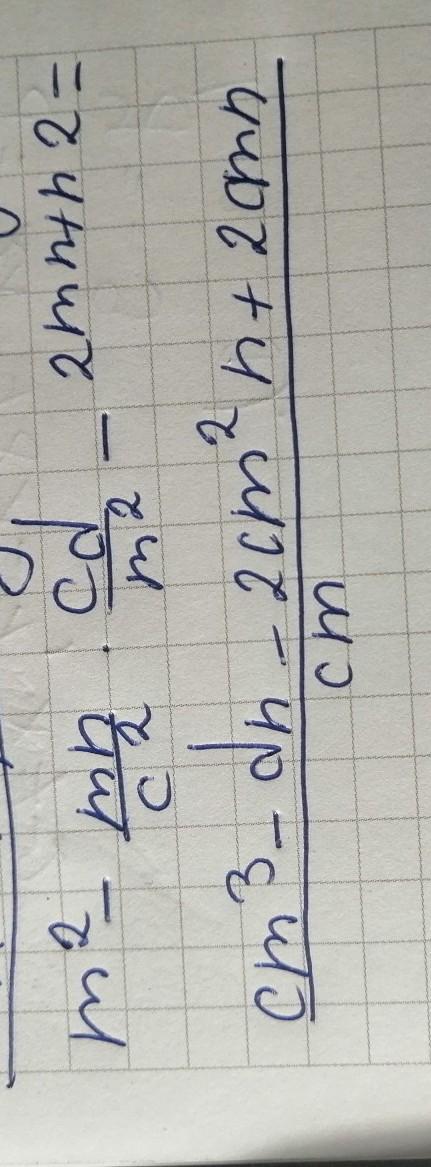 m² - mn/c² · cd/m² - 2mn+n2=
cm³ - dn - 2cm²n + 2cmn / cm